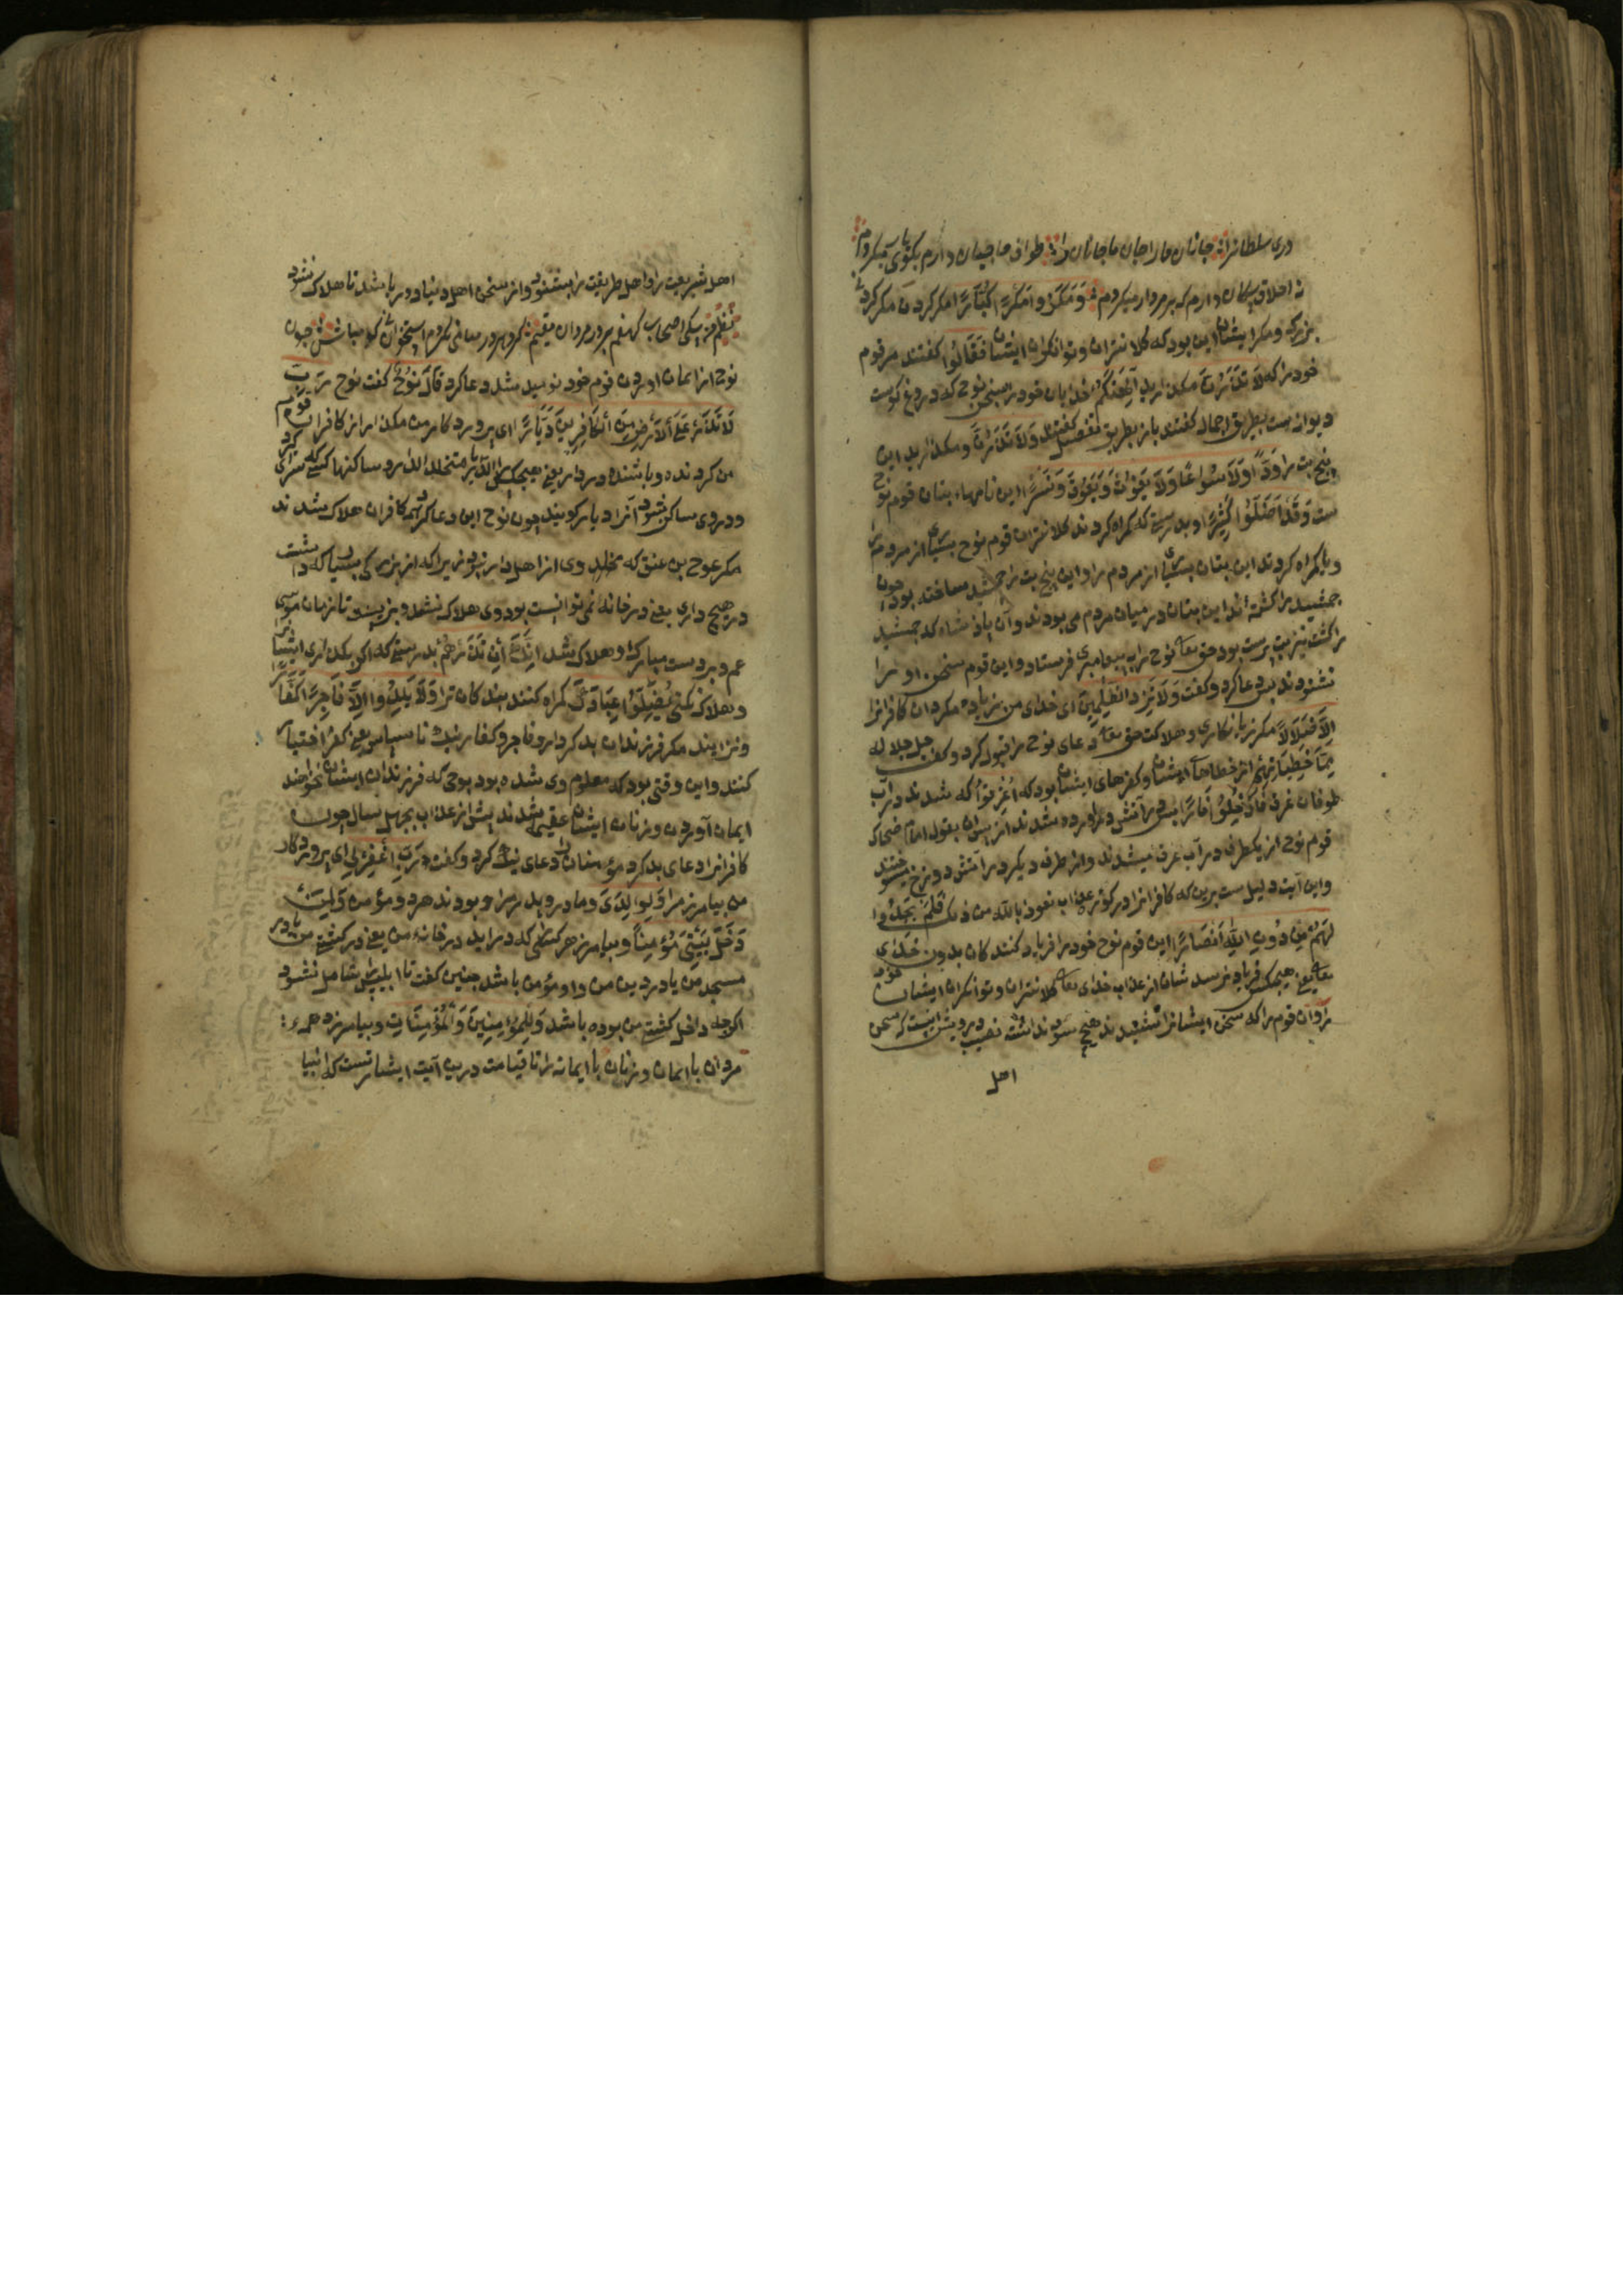 دری سلطانرا جانان مارا جان ما جانان ما را طواف حاجیان دارم بکوی یار میکردم
نه اخلاق سکان دارم که بر مردار میکردم وَمَكَرُوا مَكْرًا كُبَّارًا مکر کردن مکر کردنی
بزرک و مکر ایشان این بود که کلانتران و توانکران ایشان فَقَالُوا کفتند مر قوم
خود را که لَا تَذَرُنَّ مکذارید آلِهَتَكُمْ خدایان خود را بسخن نوح که دروغ کوست
و دیوانه ست بطریق اجمال کفتند باز بطریق تفصیل کفتند وَلَا تَذَرُنَّ و مکذارید این
پنج بت را وَدًّا وَلَا سُوَاعًا وَلَا يَغُوثَ وَيَعُوقَ وَنَسْرًا این نامهاء بتان قوم نوح
ست وَقَدْ أَضَلُّوا كَثِيرًا و بدرستی که کمراه کردند کلانتران قوم نوح بسیاری از مردم را
و یا کمراه کردند این بتان بسیاری از مردم را و این پنج بت را جمشید ساخته بود چون
جمشید را کشته اند این بتان در میان مردم می بودند و آن پادشاه که جمشید
را کشت نیز بت پرست بود حق تعا نوح را به پیغامبری فرستاد و این قوم سخن او را
نشنودند پس دعا کرد و کفت وَلَا تَزِدِ الظَّالِمِينَ ای خدای من زیاده مکردان کافرانرا
إِلَّا ضَلَالًا مکر زیانکاری و هلاکت حق تعا دعای نوح را قبول کرد و کفت جل جلاله
مِمَّا خَطِيئَاتِهِمْ از خطاهآ ایشان و کفرهای ایشان بود که أُغْرِقُوا که شدند در آب
طوفان غرق فَأُدْخِلُوا نَارًا پس در آتش درآورده شدند از پس آن بقول امام ضحاک
قوم نوح از یکطرف در آب غرق میشدند و از طرف دیکر در آتش دوزخ میسوختند
و این آیت دلیل ست برین که کافرانرا در کور عذاب نعوذ بالله من ذلک فَلَمْ يَجِدُوا
لَهُمْ مِنْ دُونِ اللَّهِ أَنْصَارًا این قوم نوح خود را فریاد کنند کان بدون خدای
تعا یعنی هیچکس فریاد نرسد شان از عذاب خدای تعا کلانتران و توانکران ایشان
را و آن قوم را که سخن ایشانرا شنیدند هیچ سود نداشت نصیب درویش اینست که سخن
اهل
اهل شریعت را و اهل طریقت را بشنود و از سخن اهل دنیا دور باشد تا هلاک نشود
نظم سکی اصحاب کهفم بر در مردان مقیم کرد هر در میانی نکردم استخوان کو مباش چون
نوح از ایمان اوردن قوم خود نومید شد دعا کرد قَالَ نُوحٌ کفت نوح رَبِّ
لَا تَذَرْ عَلَى الْأَرْضِ مِنَ الْكَافِرِينَ دَيَّارًا ای پروردکار من مکذار از کافران قوم
من کردنده و باشنده در دار یعنی هیچکس را
و در وی ساکن نشود آنرا دیار کویند چون نوح این دعا کرد همه کافران هلاک شدند
مکر عوج بن عنق که وی از اهل دار نبود زیرا که از بزرکی بسیار که داشت
در هیچ داری یعنی در خانه نمی توانست بود وی هلاک نشد و بزیست تا زمان موسی
عم و بر دست مبارک او هلاک شد إِنَّكَ إِنْ تَذَرْهُمْ بدرستی که اکر بکذاری ایشانرا
و هلاک نکنی يُضِلُّوا عِبَادَكَ کمراه کنند بندکان ترا وَلَا يَلِدُوا إِلَّا فَاجِرًا كَفَّارًا
و نزایند مکر فرزندان بد کردار و فاجر و کفار یعنی ناسپاس یعنی کفر اختیار
کنند و این وقتی بود که معلوم وی شده بود بوحی که فرزندان ایشان نخواهند
ایمان آوردن و زنان ایشان عقیم شدند پیش از عذاب بچهل سال چون
کافرانرا دعای بد کرد مؤمنان را دعای نیک کرد و کفت رَبِّ اغْفِرْ لِي ای پروردکار
من بیامرز مرا وَلِوَالِدَيَّ و مادر و پدر مرا و بودند هر دو مؤمن وَلِمَنْ
دَخَلَ بَيْتِيَ مُؤْمِنًا و بیامرز هر کسی که دراید در خانه من یعنی در کشتی من یا در
مسجد من یا در دین من و او مؤمن باشد چنین کفت تا ابلیس شامل نشود
اکرچه داخل کشتی من بوده باشد وَلِلْمُؤْمِنِينَ وَالْمُؤْمِنَاتِ و بیامرز همه
مردان با ایمان و زنان با ایمانه را تا قیامت درین آیت اشارتست که انبیا